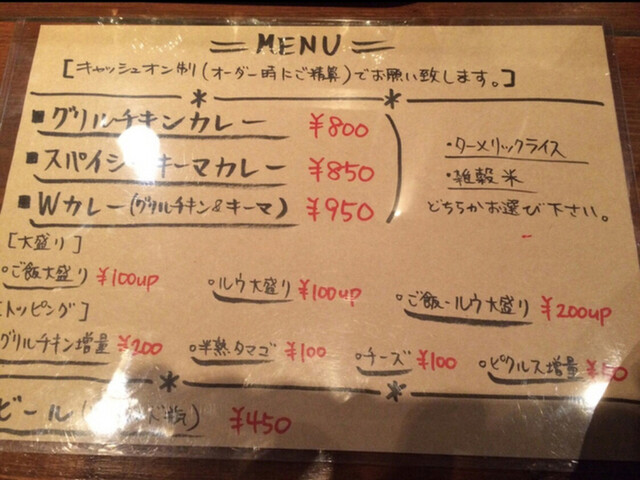 MENU
[キャッシュオン制(オーダー時にご精算)でお願い致します。]
■グリルチキンカレー ¥800
■スパイシーキーマカレー ¥850
■Wカレー(グリルチキン&キーマ) ¥950
・ターメリックライス
・雑穀米
どちらかお選び下さい。
[大盛り]
○ご飯大盛り ¥100up ○ルウ大盛り ¥100up ○ご飯・ルウ大盛り ¥200up
[トッピング]
グリルチキン増量 ¥200 ○半熟タマゴ ¥100 ○チーズ ¥100 ○ピクルス増量 ¥50
ビール ¥450